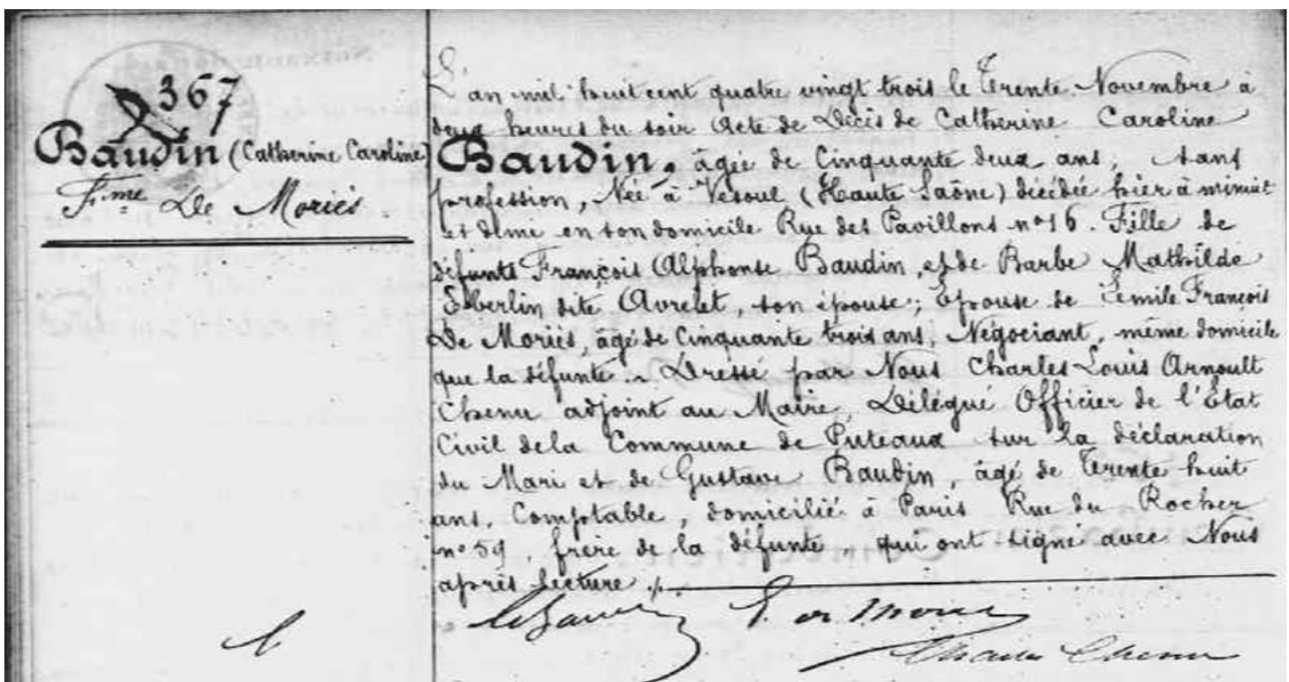 367
Baudin (Catherine Caroline)
Fme De Moriès.
L'an mil huit cent quatre vingt trois le Trente Novembre à
deux heures du soir Acte de Décès de Catherine Caroline
Baudin, âgée de Cinquante deux ans, sans
profession, Née à Vesoul (Haute Saône) décédée hier à minuit
et demie en son domicile Rue des Pavillons no 16. Fille de
défunts François Alphonse Baudin, et de Barbe Mathilde
Eberlin dite Avrelet, son épouse; Epouse de Emile François
De Moriès, âgé de Cinquante trois ans, Négociant, même domicile
que la défunte. Dressé par Nous Charles Louis Arnoult
Chenu adjoint au Maire, Délégué Officier de l'Etat
Civil dela Commune de Puteaux sur la déclaration
du Mari et de Gustave Baudin, âgé de Trente huit
ans, Comptable, domicilié à Paris Rue du Rocher
no 59, frère de la défunte, qui ont signé avec Nous
après lecture ./.
Charles Chenu